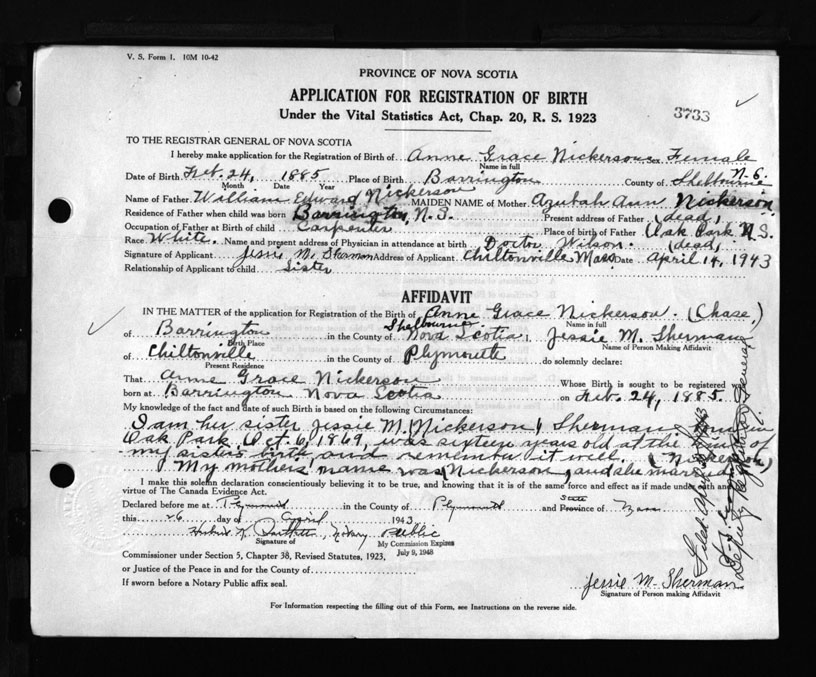 V. S. Form 1. 10M 10-42
PROVINCE OF NOVA SCOTIA
APPLICATION FOR REGISTRATION OF BIRTH
Under the Vital Statistics Act, Chap. 20, R. S. 1923
3733
TO THE REGISTRAR GENERAL OF NOVA SCOTIA
I hereby make application for the Registration of Birth of Anne Grace Nickerson Sex Female
Name in full
Date of Birth Feb. 24, 1885 Place of Birth Barrington County of Shelbourne N.S.
Month Date Year
Name of Father William Edward Nickerson MAIDEN NAME of Mother Azubah Ann Nickerson
Residence of Father when child was born Barrington, N.S. Present address of Father (dead)
Occupation of Father at Birth of child Carpenter Place of birth of Father Oak Park N.S.
Race White. Name and present address of Physician in attendance at birth Doctor Wilson. (dead)
Signature of Applicant Jessie M. Sherman Address of Applicant Chiltonville Mass Date April 14, 1943
Relationship of Applicant to child Sister
AFFIDAVIT
IN THE MATTER of the application for Registration of the Birth of Anne Grace Nickerson. (Chase,)
Name in full
of Barrington in the County of Shelbourne Nova Scotia, I, Jessie M. Sherman
Birth Place Name of Person Making Affidavit
of Chiltonville in the County of Plymouth do solemnly declare:
Present Residence
That Anne Grace Nickerson Whose Birth is sought to be registered was
born at Barrington Nova Scotia on Feb. 24, 1885.
My knowledge of the fact and date of such Birth is based on the following Circumstances:
I am her sister Jessie M. (Nickerson) Sherman born in
Oak Park Oct. 6, 1869, was sixteen years old at the time of
my sisters birth and remember it well. (Nickerson)
My mothers name was Nickerson, and she married
I make this solemn declaration conscientiously believing it to be true, and knowing that it is of the same force and effect as if made under oath and
virtue of The Canada Evidence Act.
Declared before me at Plymouth in the County of Plymouth and State Province of Mass
this 26 day of April 1943
Notary Public
Signature of My Commission Expires
July 9, 1948
Commissioner under Section 5, Chapter 38, Revised Statutes, 1923,
or Justice of the Peace in and for the County of
If sworn before a Notary Public affix seal.
Jessie M. Sherman
Signature of Person making Affidavit
For Information respecting the filling out of this Form, see Instructions on the reverse side.
Deputy Registrar General